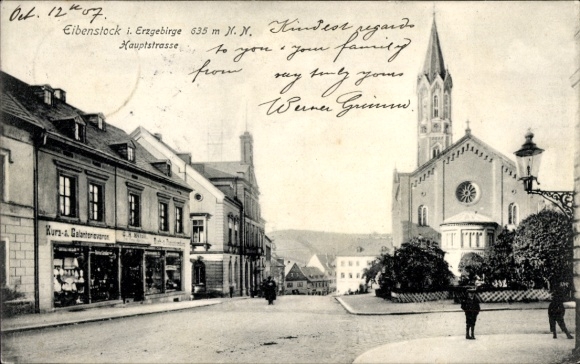 Oct. 12th 07.
Eibenstock i. Erzgebirge 635 m N. N.
Hauptstrasse
Kindest regards
to you & your family
from
very truly yours
Werner Grimm.
Kurz- u. Galanteriewaren